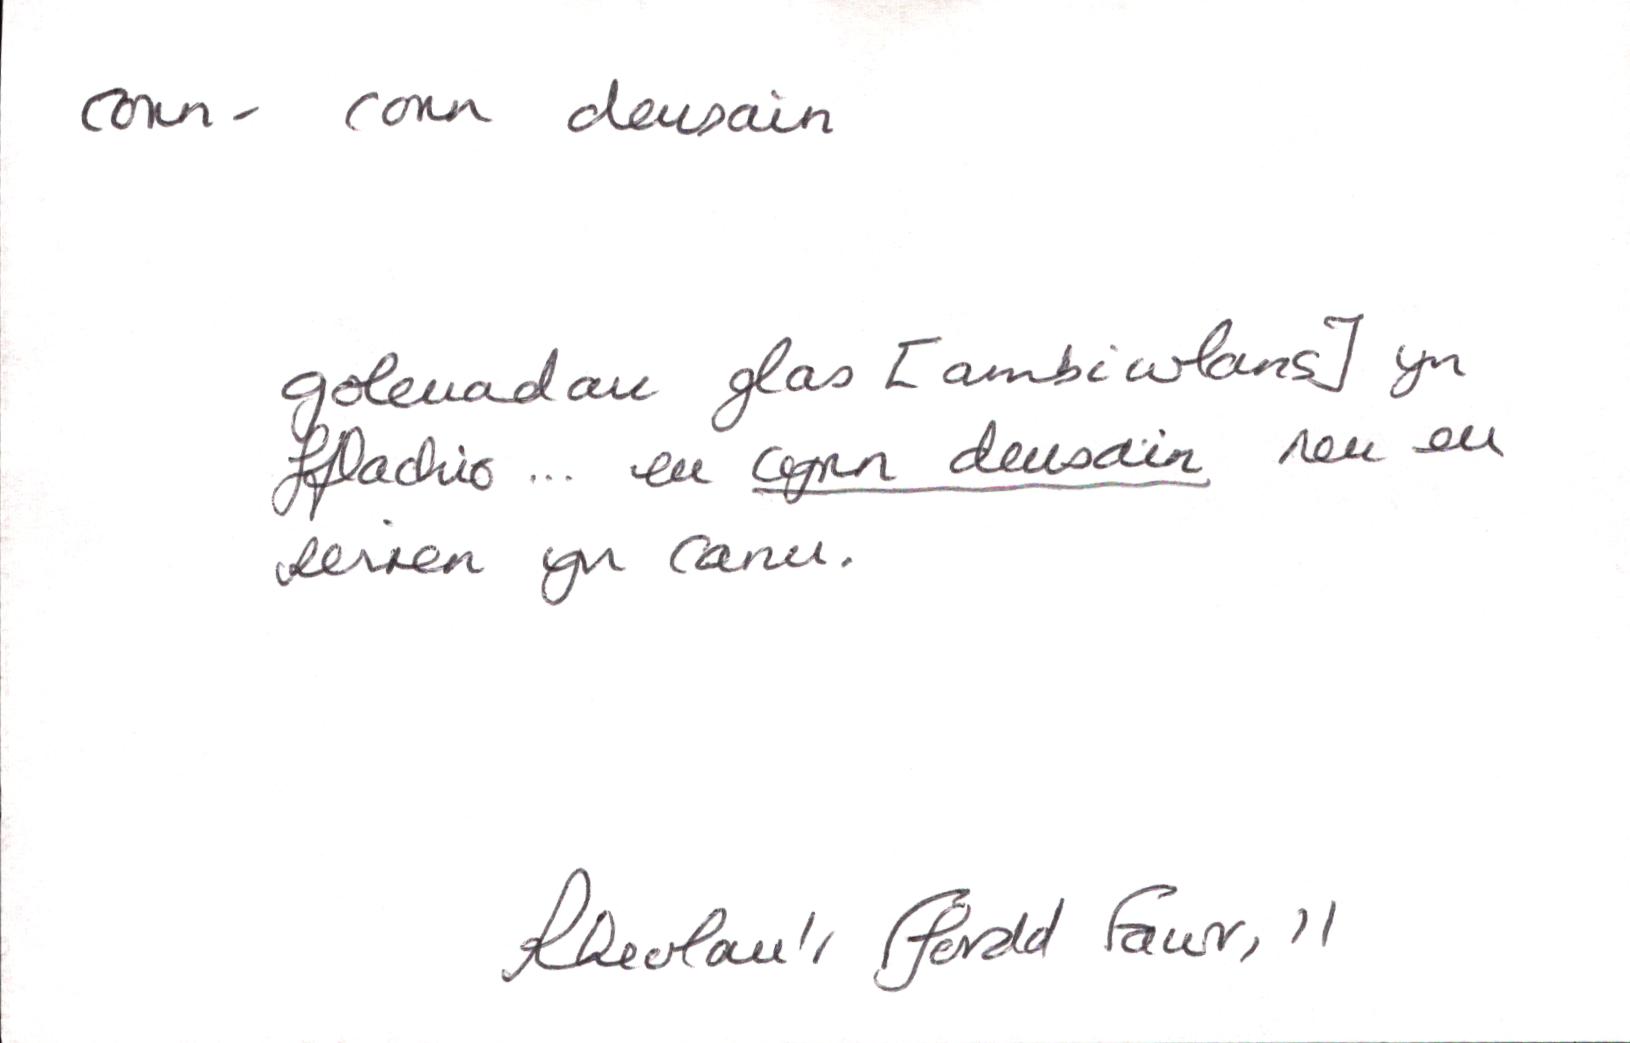 corn - corn deusain
goleuadau glas [ambiwlans] yn
fflachio ... eu cyrn deusain neu eu
seiren yn canu.
Rheolau'r Ffordd Fawr, 11